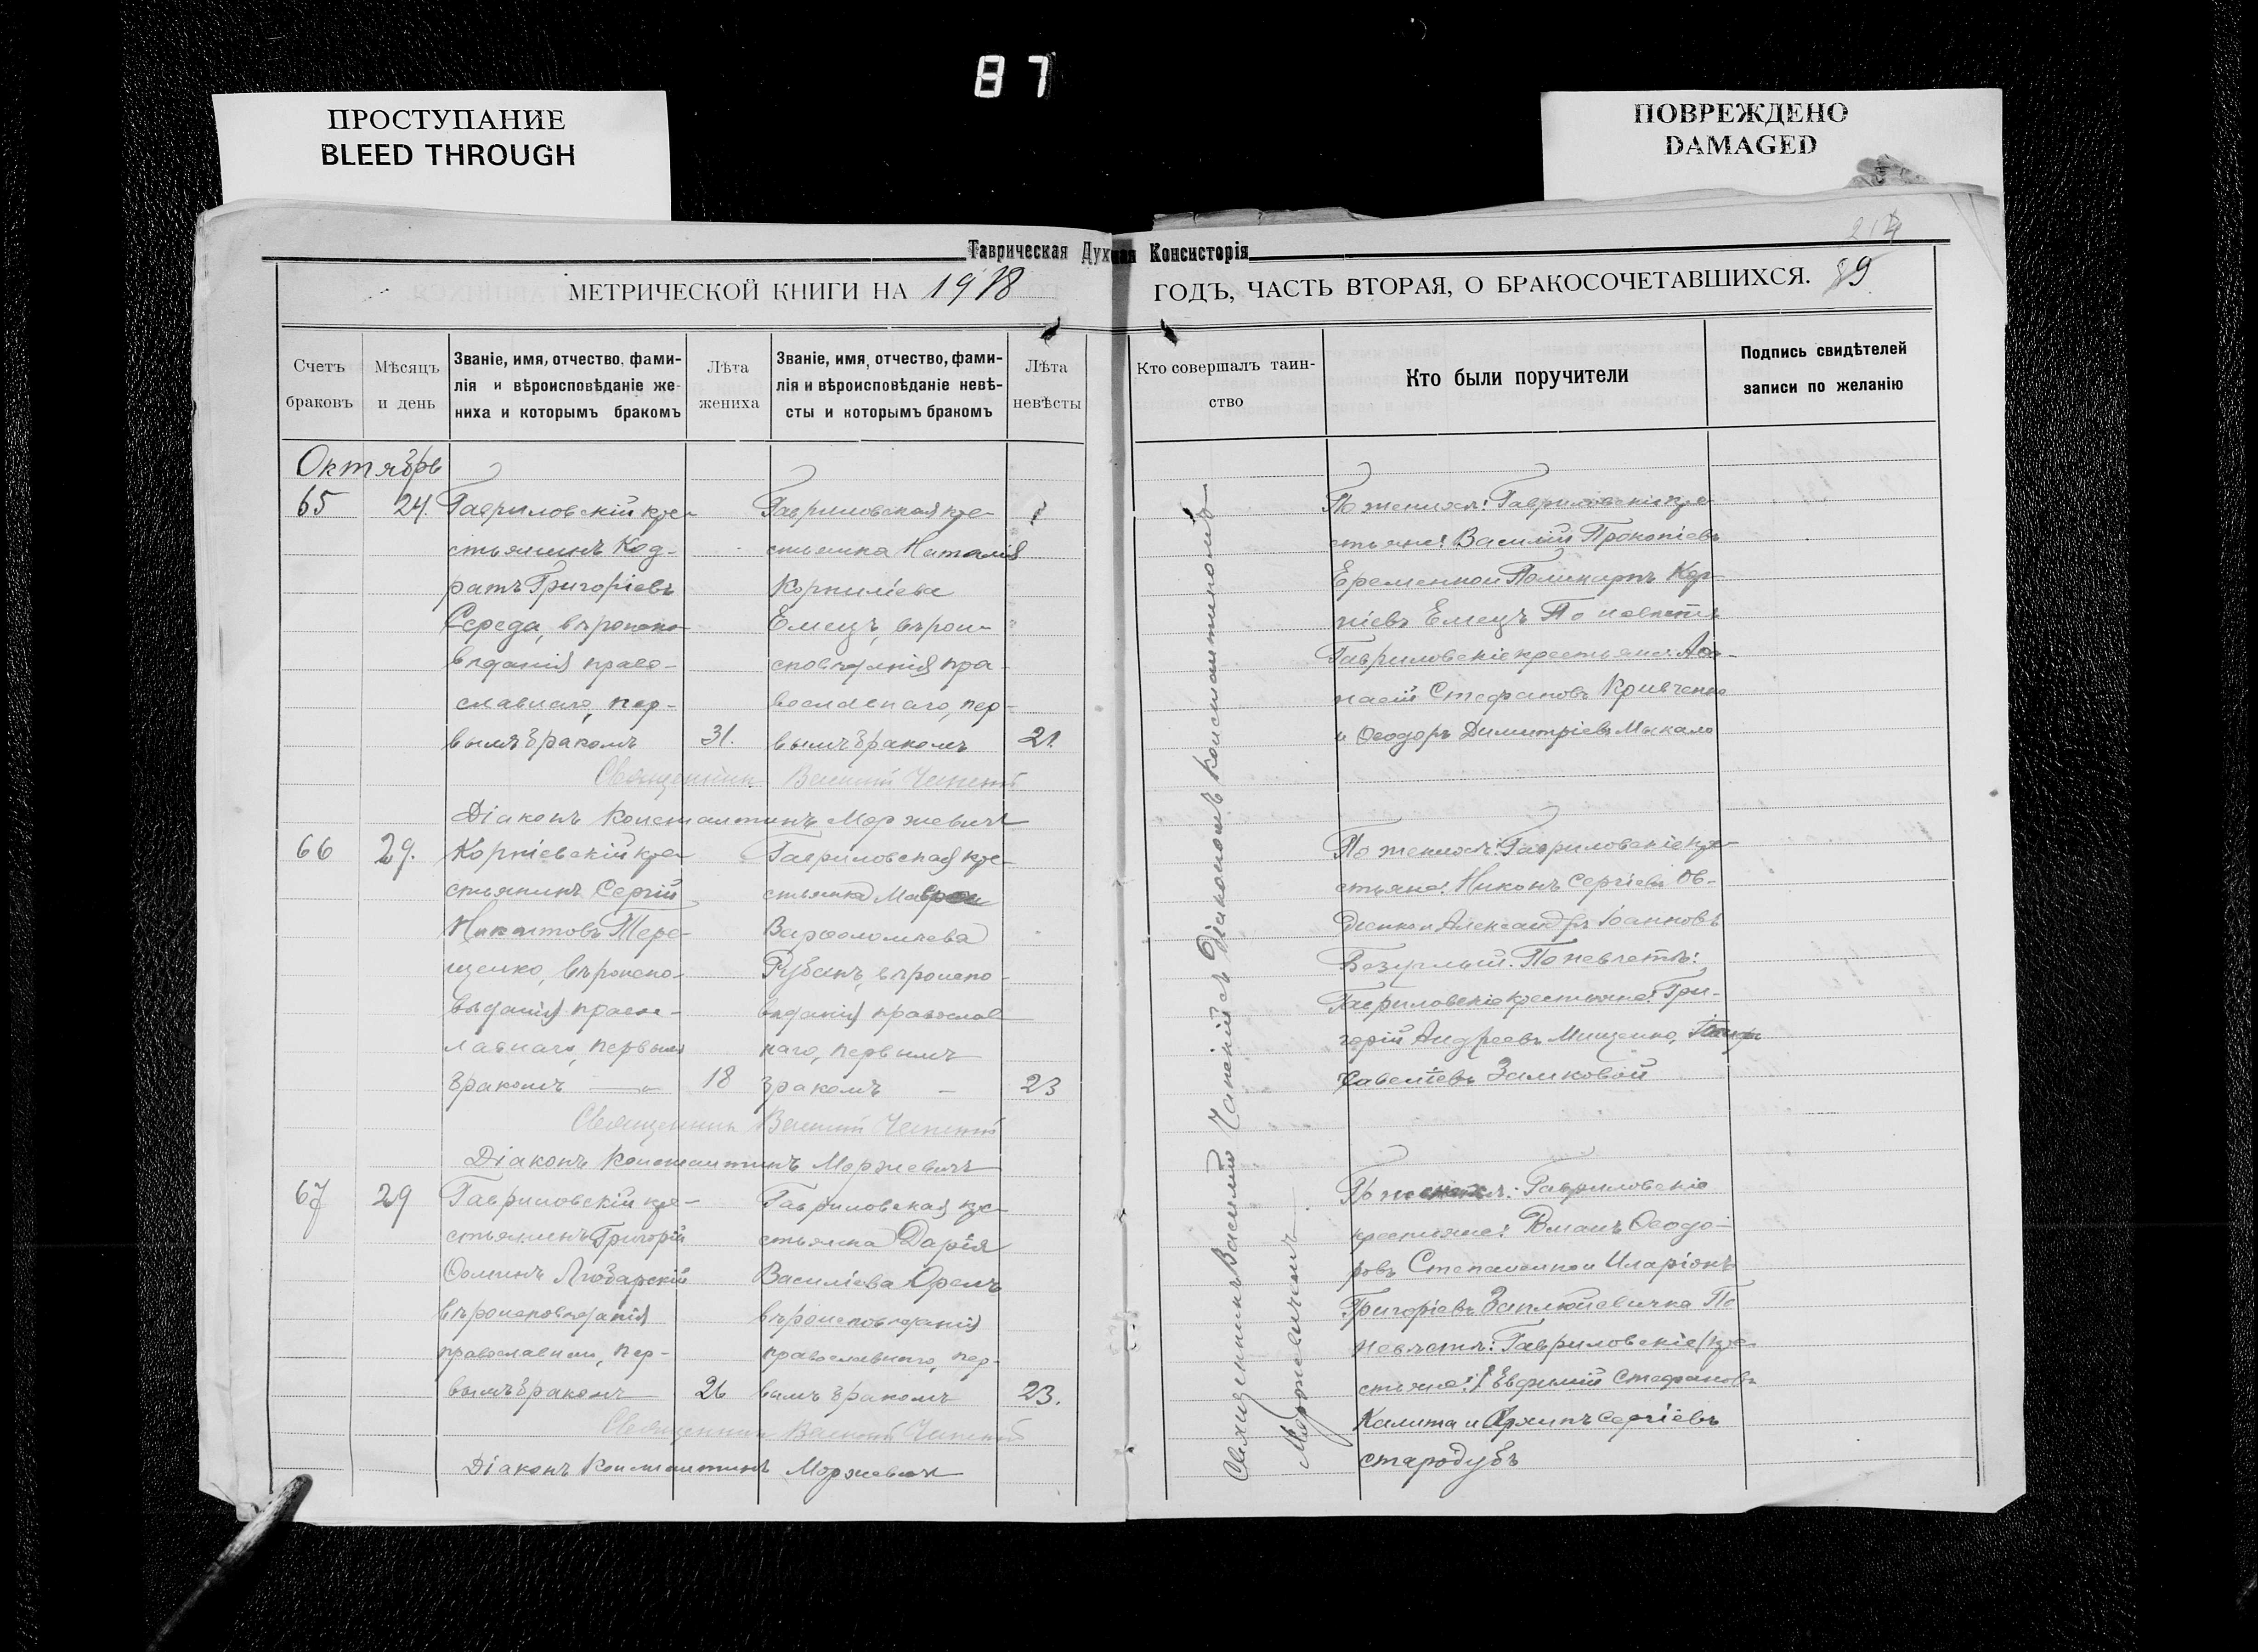 87
ПРОСТУПАНИЕ
BLEED THROUGH
ПОВРЕЖДЕНО
DAMAGED
Таврическая Духовная Консисторія
МЕТРИЧЕСКОЙ КНИГИ НА 1918
ГОДЪ, ЧАСТЬ ВТОРАЯ, О БРАКОСОЧЕТАВШИХСЯ. 89
214
Счетъ браковъ
Мѣсяцъ и день
Званіе, имя, отчество, фами-
лія и вѣроисповѣданіе же-
ниха и которымъ бракомъ
Лѣта жениха
Званіе, имя, отчество, фами-
лія и вѣроисповѣданіе невѣ-
сты и которымъ бракомъ
Лѣта невѣсты
Кто совершалъ таин-
ство
Кто были поручители
Подпись свидѣтелей
записи по желанію
Октябрь
65
24.
Гавриловскій кре-
стьянинъ Код-
ратъ Григоріевъ
Середа, вѣроиспо-
вѣданія право-
славнаго, пер-
вымъ бракомъ
31.
Гавриловская кре-
стьянка Наталія
Корниліева
Емецъ, вѣрои-
сповѣданія пра-
вославнаго, пер-
вымъ бракомъ
21.
Священникъ Василий Чапскій
Діаконъ Константинъ Моржевичъ
По женихѣ: Гавриловскіе кре-
стьяне: Василій Прокопіевъ
Еременко и Поликарпъ Кор-
ніевъ Емецъ По невѣстѣ
Гавриловскіе крестьяне: Аѳа-
насій Стефановъ Кривченко
и Ѳеодоръ Димитріевъ Мыкало
66
29.
Корніевскій кре-
стьянинъ Сергій
Никитовъ Тере-
щенко, вѣроиспо-
вѣданія правос-
лавнаго, первымъ
бракомъ
18
Гавриловская кре-
стьянка
Варѳоломѣева
Рубанъ, вѣроиспо-
вѣданія православ
наго, первымъ
бракомъ
23
Священникъ Василий Чапскій
Діаконъ Константинъ Моржевичъ
По женихѣ: Гавриловскіе кре-
стьяне: Никонъ Сергіевъ Ов-
диенко и Александръ Іоанновъ
По невѣстѣ:
Гавриловскіе крестьяне: Гри-
горій Андреевъ Мищенко,
Савеліевъ Замковой
67
29
Гавриловскій кре-
стьянинъ Григорій
Ѳоминъ Любарскій
вѣроисповѣданія
православнаго, пер-
вымъ бракомъ
26
Гавриловская кре-
стьянка Дарія
Василіева Орелъ
вѣроисповѣданія
православнаго, пер-
вымъ бракомъ
23.
Священникъ Василий Чапскій
Діаконъ Константинъ Моржевичъ
По женихѣ: Гавриловскіе
крестьяне: Ѳеодо-
ровъ Степаненко и Иларіонъ
Григоріевъ По
невѣстѣ: Гавриловскіе кре-
стьяне: Евфимій Стефановъ
Калита и Архипъ Сергіевъ
Стародубъ
Священникъ Василій Чапскій съ Діакономъ Константиномъ
Моржевичемъ